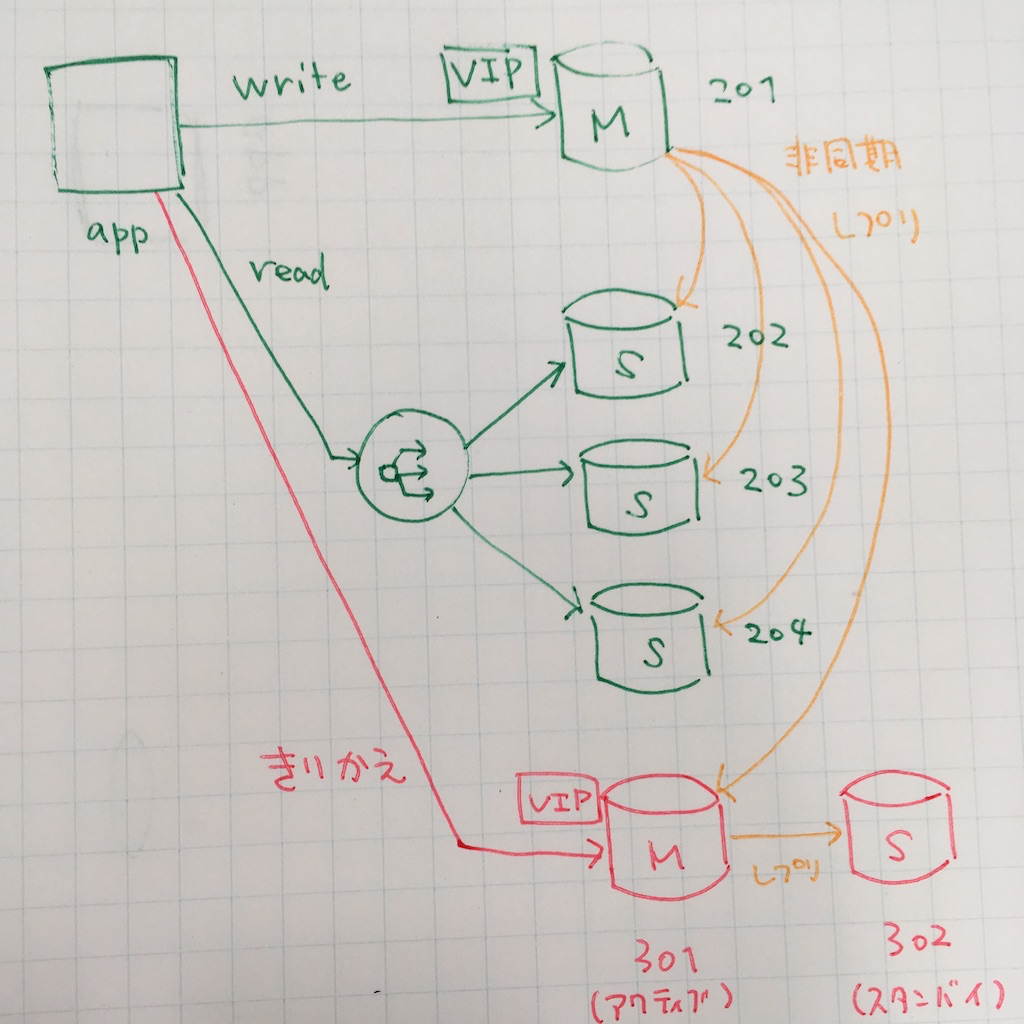 write
VIP
M
201
非同期
レプリ
app
read
S
202
S
203
S
204
きりかえ
VIP
M
レプリ
S
301
(アクティブ)
302
(スタンバイ)